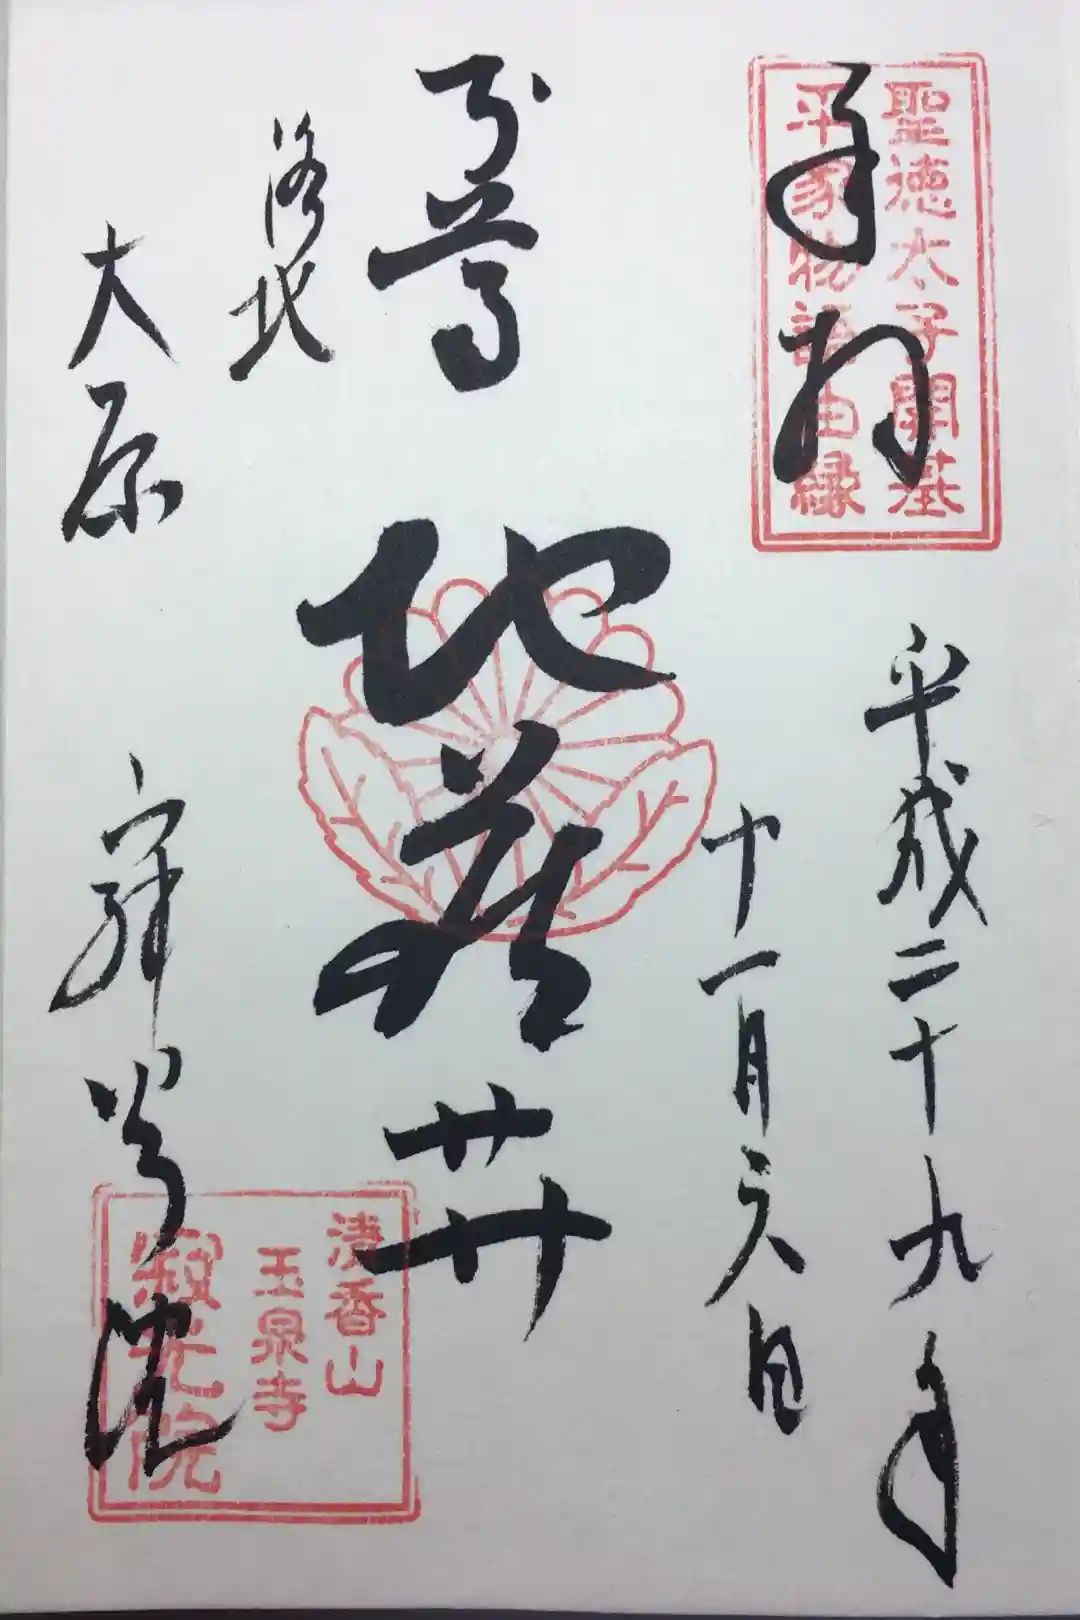 奉拝
聖徳太子開基
平家物語由縁
平成二十九年
十一月六日
本尊 地蔵𦬇
洛北
大原 寂光院
清香山
玉泉寺
寂光院